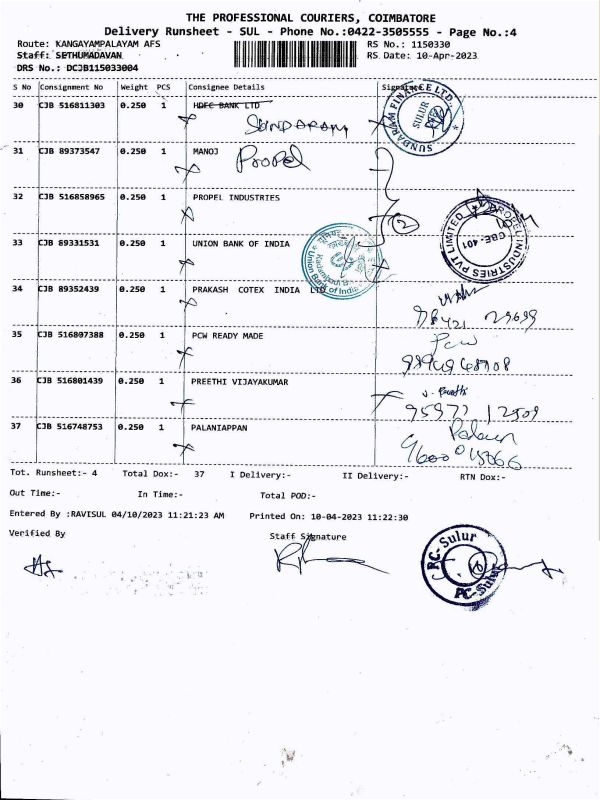 THE PROFESSIONAL COURIERS, COIMBATORE
Delivery Runsheet - SUL - Phone No.:0422-3505555 - Page No.:4
Route: KANGAYAMPALAYAM AFS RS No.: 1150330
Staff: SETHUMADAVAN RS Date: 10-Apr-2023
DRS No.: DCJB115033004
S No Consignment No Weight PCS Consignee Details Signature
30 CJB 516811303 0.250 1 HDFC BANK LTD
SUNDARAM
SUNDARAM FINANCE LTD.,
SULUR
31 CJB 89373547 0.250 1 MANOJ Propel
32 CJB 516858965 0.250 1 PROPEL INDUSTRIES
2
PROPEL INDUSTRIES PVT LIMITED
CBE-401
33 CJB 89331531 0.250 1 UNION BANK OF INDIA
Union Bank of India
34 CJB 89352439 0.250 1 PRAKASH COTEX INDIA LTD
35 CJB 516807388 0.250 1 PCW READY MADE
Pcw
36 CJB 516801439 0.250 1 PREETHI VIJAYAKUMAR
37 CJB 516748753 0.250 1 PALANIAPPAN
Tot. Runsheet:- 4 Total Dox:- 37 I Delivery:- II Delivery:- RTN Dox:-
Out Time:- In Time:- Total POD:-
Entered By :RAVISUL 04/10/2023 11:21:23 AM Printed On: 10-04-2023 11:22:30
Verified By Staff Signature
PC-Sulur
PC-Sulur